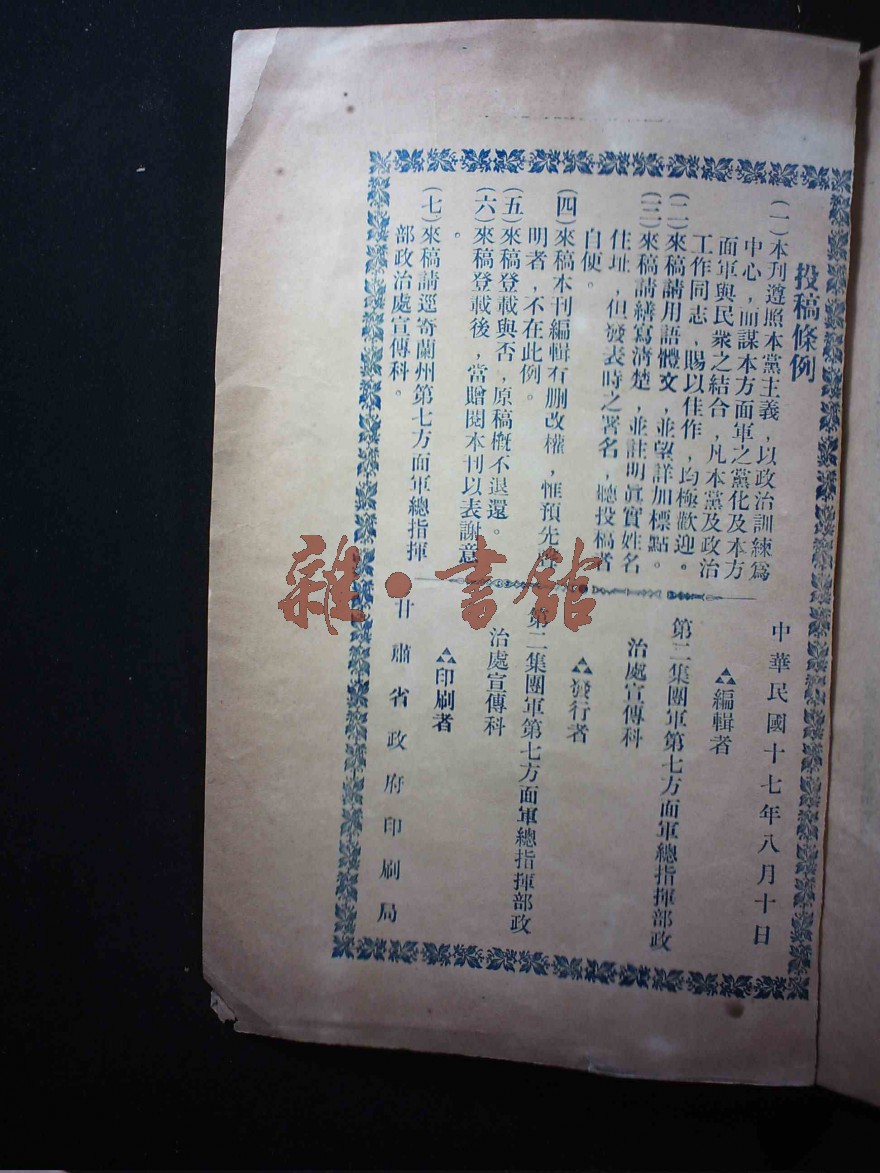 投稿條例
(一)本刊遵照本黨主義,以政治訓練爲
中心,而謀本方面軍之黨化及本方
面軍與民衆之結合,凡本黨及政治
工作同志,賜以佳作,均極歡迎。
(二)來稿請用語體文,並望詳加標點。
(三)來稿請繕寫清楚,並註明眞實姓名
住址,但發表時之署名,聽投稿者
自便。
(四)來稿本刊編輯有删改權,惟預先聲
明者,不在此例。
(五)來稿登載與否,原稿概不退還。
(六)來稿登載後,當贈閱本刊以表謝意
。
(七)來稿請逕寄蘭州第七方面軍總指揮
部政治處宣傳科。
中華民國十七年八月十日
編輯者
第二集團軍第七方面軍總指揮部政
治處宣傳科
發行者
第二集團軍第七方面軍總指揮部政
治處宣傳科
印刷者
甘肅省政府印刷局
雜·書館